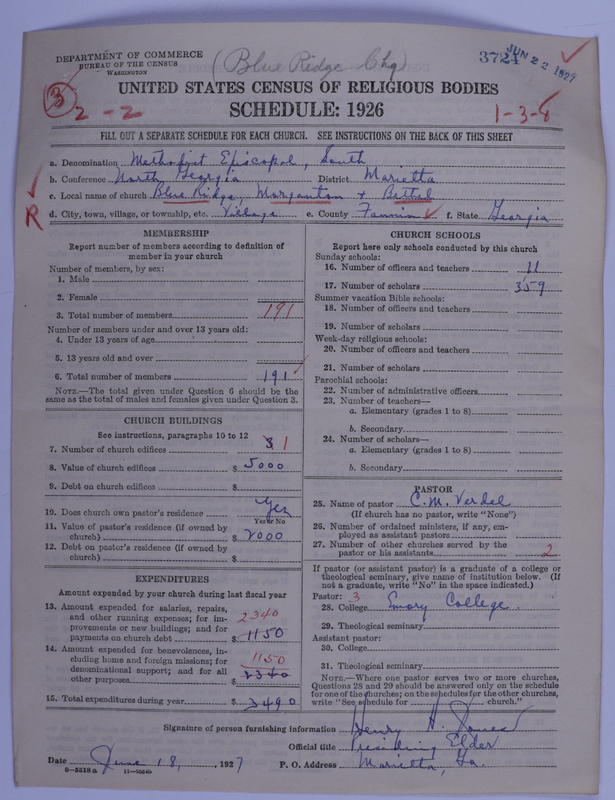 DEPARTMENT OF COMMERCE
BUREAU OF THE CENSUS
WASHINGTON
(Blue Ridge Chg)
3724
JUN 22 1927
UNITED STATES CENSUS OF RELIGIOUS BODIES
SCHEDULE: 1926
3
2-2
1-3-8
FILL OUT A SEPARATE SCHEDULE FOR EACH CHURCH. SEE INSTRUCTIONS ON THE BACK OF THIS SHEET
a. Denomination Methodist Episcopal, South
b. Conference North Georgia District Marietta
c. Local name of church Blue Ridge, Morganton + Bethel
R
d. City, town, village, or township, etc. Village e. County Fannin f. State Georgia
MEMBERSHIP
Report number of members according to definition of
member in your church
Number of members, by sex:
1. Male
2. Female
3. Total number of members 191
Number of members under and over 13 years old:
4. Under 13 years of age
5. 13 years old and over
6. Total number of members 191
NOTE.—The total given under Question 6 should be the
same as the total of males and females given under Question 3.
CHURCH BUILDINGS
See instructions, paragraphs 10 to 12
7. Number of church edifices 3 1
8. Value of church edifices $ 5000
9. Debt on church edifices $
10. Does church own pastor's residence Yes
Yes or No
11. Value of pastor's residence (if owned by
church) $ 2000
12. Debt on pastor's residence (if owned by
church) $
EXPENDITURES
Amount expended by your church during last fiscal year
13. Amount expended for salaries, repairs,
and other running expenses; for im-
provements or new buildings; and for
payments on church debt $ 2340 1150
14. Amount expended for benevolences, in-
cluding home and foreign missions; for
denominational support; and for all
other purposes $ 1150 2340
15. Total expenditures during year $ 3490
CHURCH SCHOOLS
Report here only schools conducted by this church
Sunday schools:
16. Number of officers and teachers 11
17. Number of scholars 359
Summer vacation Bible schools:
18. Number of officers and teachers
19. Number of scholars
Week-day religious schools:
20. Number of officers and teachers
21. Number of scholars
Parochial schools:
22. Number of administrative officers
23. Number of teachers—
a. Elementary (grades 1 to 8)
b. Secondary
24. Number of scholars—
a. Elementary (grades 1 to 8)
b. Secondary
PASTOR
25. Name of pastor C. M. Verdel
(If church has no pastor, write "None")
26. Number of ordained ministers, if any, em-
ployed as assistant pastors
27. Number of other churches served by the
pastor or his assistants 2
If pastor (or assistant pastor) is a graduate of a college or
theological seminary, give name of institution below. (If
not a graduate, write "No" in the space indicated.)
Pastor: 3
28. College Emory College
29. Theological seminary
Assistant pastor:
30. College
31. Theological seminary
NOTE.—Where one pastor serves two or more churches,
Questions 28 and 29 should be answered only on the schedule
for one of the churches; on the schedules for the other churches,
write "See schedule for church."
Signature of person furnishing information Henry H. Jones
Official title Presiding Elder
Date June 18, 1927 P. O. Address Marietta, Ga.